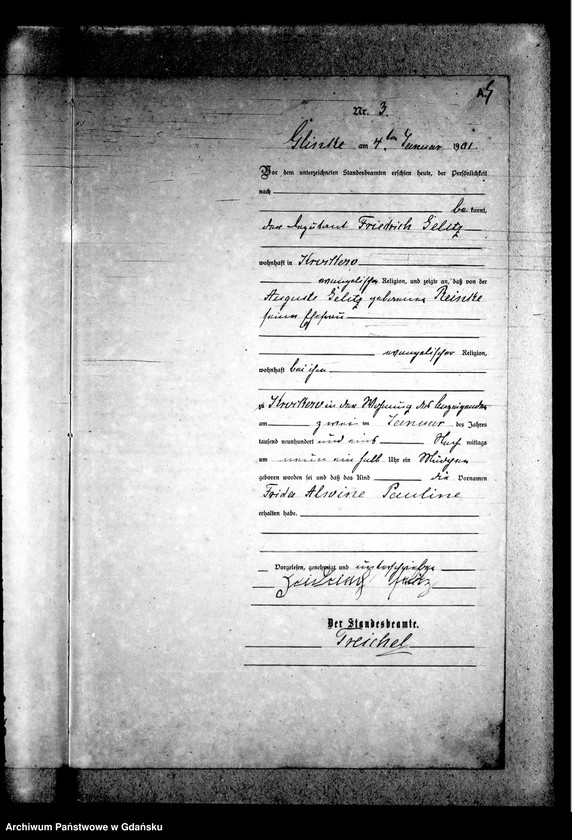 Nr. 3.
Glinke am 4ten Januar 1901.
Vor dem unterzeichneten Standesbeamten erschien heute, der Persönlichkeit
nach
be kannt,
der Friedrich Gelitz
wohnhaft in
evangelischer Religion, und zeigte an, daß von der
Auguste Gelitz geborenen Reinke
seiner Ehefrau
evangelischer Religion,
wohnhaft bei ihm
zu in der Wohnung des Anzeigenden
am zwei ten Januar des Jahres
tausend neunhundert und eins Nach mittags
um neun ein halb Uhr ein Mädchen
geboren worden sei und daß das Kind die Vornamen
Frida Alwine Pauline
erhalten habe.
Vorgelesen, genehmigt und unterschrieben
Friedrich Gelitz
Der Standesbeamte.
Treichel
Archiwum Państwowe w Gdańsku